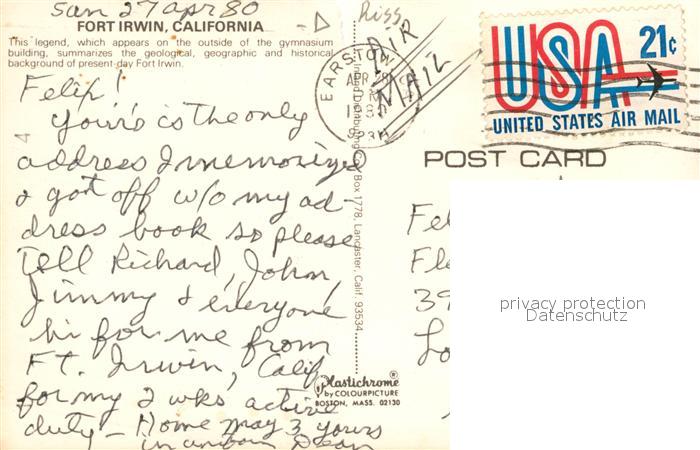 Sun 27 Apr 80
FORT IRWIN, CALIFORNIA
This legend, which appears on the outside of the gymnasium
building, summarizes the geological, geographic and historical
background of present-day Fort Irwin.
AIR
MAIL
APR 28
1980
USA 21¢
UNITED STATES AIR MAIL
POST CARD
Felix!
Yours is the only
address I memorized
& got off w/o my ad-
dress book so please
tell Richard, John,
Jimmy & everyone
hi for me from
Ft. Irwin, Calif
for my 2 wks active
duty – Home May 3 yours
Dean
Distributing Co., Box 1778, Lancaster, Calif. 93534
Plastichrome®
by COLOURPICTURE
BOSTON, MASS. 02130
Fel
Fle
39
Lo
privacy protection
Datenschutz